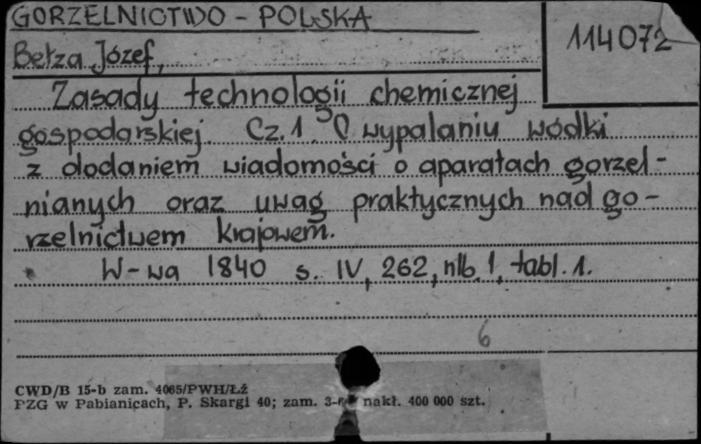 GORZELNICTWO - POLSKA
114072
Bełza Józef,
Zasady technologii chemicznej
gospodarskiej. Cz. 1. O wypalaniu wódki
z dodaniem wiadomości o aparatach gorzel-
nianych oraz uwag praktycznych nad go-
rzelnictwem krajowem.
W-wa 1840 s. IV, 262, nlb. 1, tabl. 1.
6
CWD/B 15-b zam. 4065/PWH/Łź
PZG w Pabianicach, P. Skargi 40; zam. nakł. 400 000 szt.